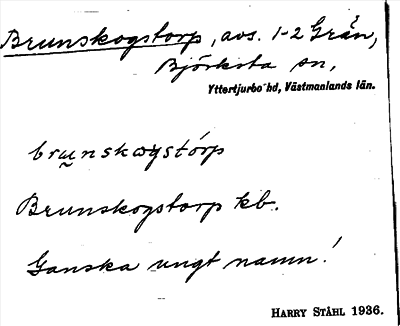 Brunskogstorp, avs. 1-2 Grän,
Björksta sn,
Yttertjurbo hd, Västmanlands län.
brunskωgstórp
Brunskogstorp kb.
Ganska ungt namn!
HARRY STÅHL 1936.